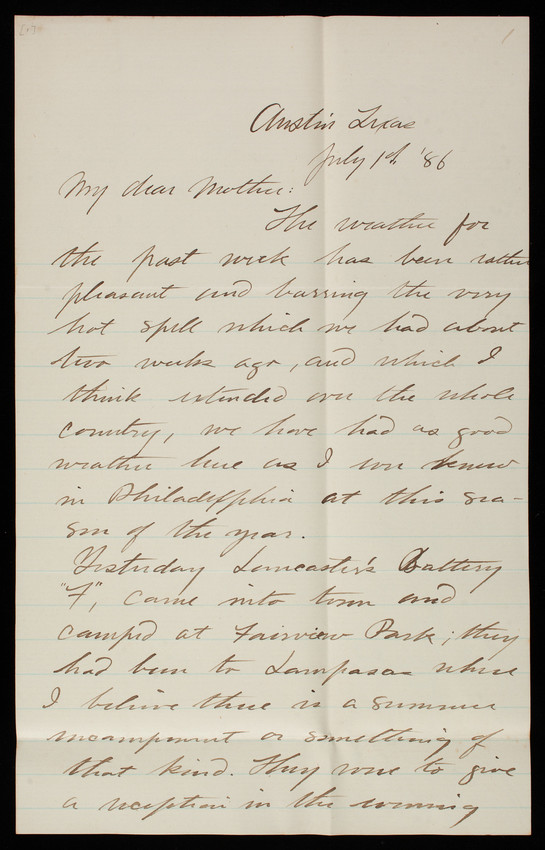 1
Austin Texas
July 1st '86
My dear Mother:
The weather for
the past week has been rather
pleasant and barring the very
hot spell which we had about
two weeks ago, and which I
think extended over the whole
country, we have had as good
weather here as I ever knew
in Philadelphia at this sea-
son of the year.
Yesterday Lancaster's Battery
"F", came into town and
camped at Fairview Park; they
had been to Lampasas where
I believe there is a summer
encampment or something of
that kind. They were to give
a reception in the evening